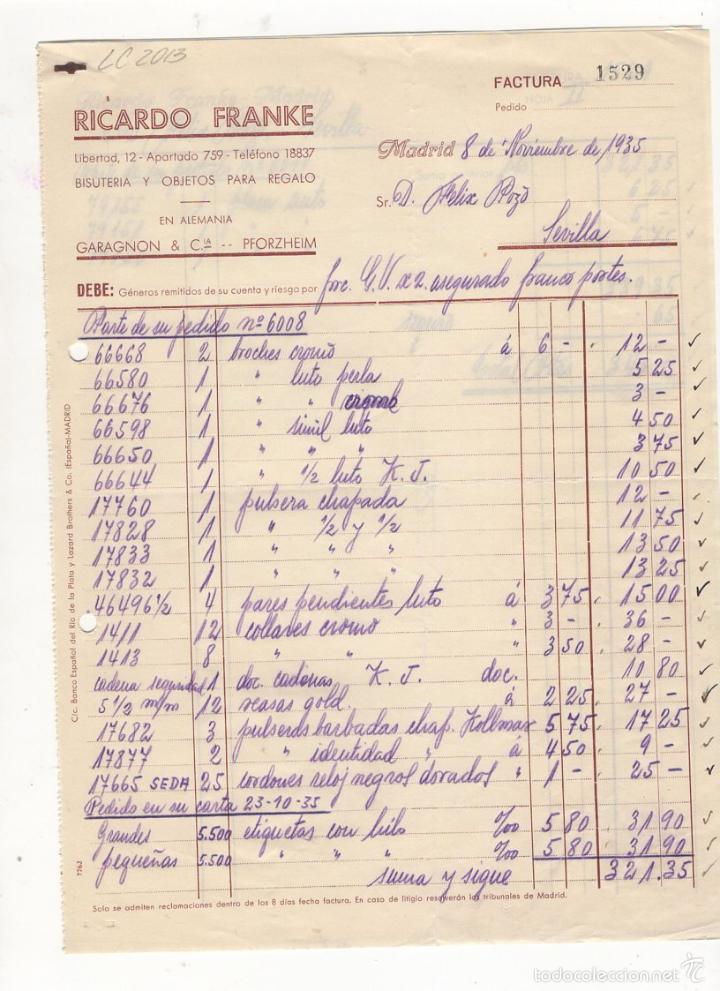 LC 2013
FACTURA 1529
Pedido
RICARDO FRANKE
Libertad, 12 - Apartado 759 - Teléfono 18837
BISUTERIA Y OBJETOS PARA REGALO
EN ALEMANIA
GARAGNON & C.IA -- PFORZHEIM
Madrid 8 de Noviembre de 1935
Sr. D. Felix Pozo
Sevilla
DEBE: Géneros remitidos de su cuenta y riesgo por foc. G.V. x 2. asegurado franco portes.
Parte de su pedido nº 6008
66668 2 broches cromo á 6 - 12 -
66580 1 " luto perla 5 25
66676 1 " " cromo 3 -
66598 1 " simil luto 4 50
66650 1 " " " 3 75
66644 1 " 1/2 luto K.J. 10 50
17760 1 pulsera chapada 12 -
17828 1 " 1/2 y 1/2 11 75
17833 1 " " " 13 50
17832 1 " " " 13 25
46496 1/2 4 pares pendientes luto á 3 75 15 00
1411 12 collares cromo " 3 - 36 -
1413 8 " 3 50 28 -
cadena seguridad 1 doc. cadenas K.J. doc. 10 80
5 1/2 m/m 12 gold. á 2 25 27 -
17682 3 pulseras barbadas chap. Kollmax 5 75 17 25
17877 2 " identidad " á 4 50 9 -
17665 SEDA 25 cordones reloj negros dorados " 1 - 25 -
Pedido en su carta 23-10-35
Grandes 5.500 etiquetas con hilo %00 5 80 31 90
pequeñas 5.500 " " " %00 5 80 31 90
suma y sigue 321.35
Solo se admiten reclamaciones dentro de los 8 días fecha factura. En caso de litigio resolverán los tribunales de Madrid.
C/c. Banco Español del Río de la Plata y Lazard Brothers & Co. (España)-MADRID
7762
todocoleccion.net